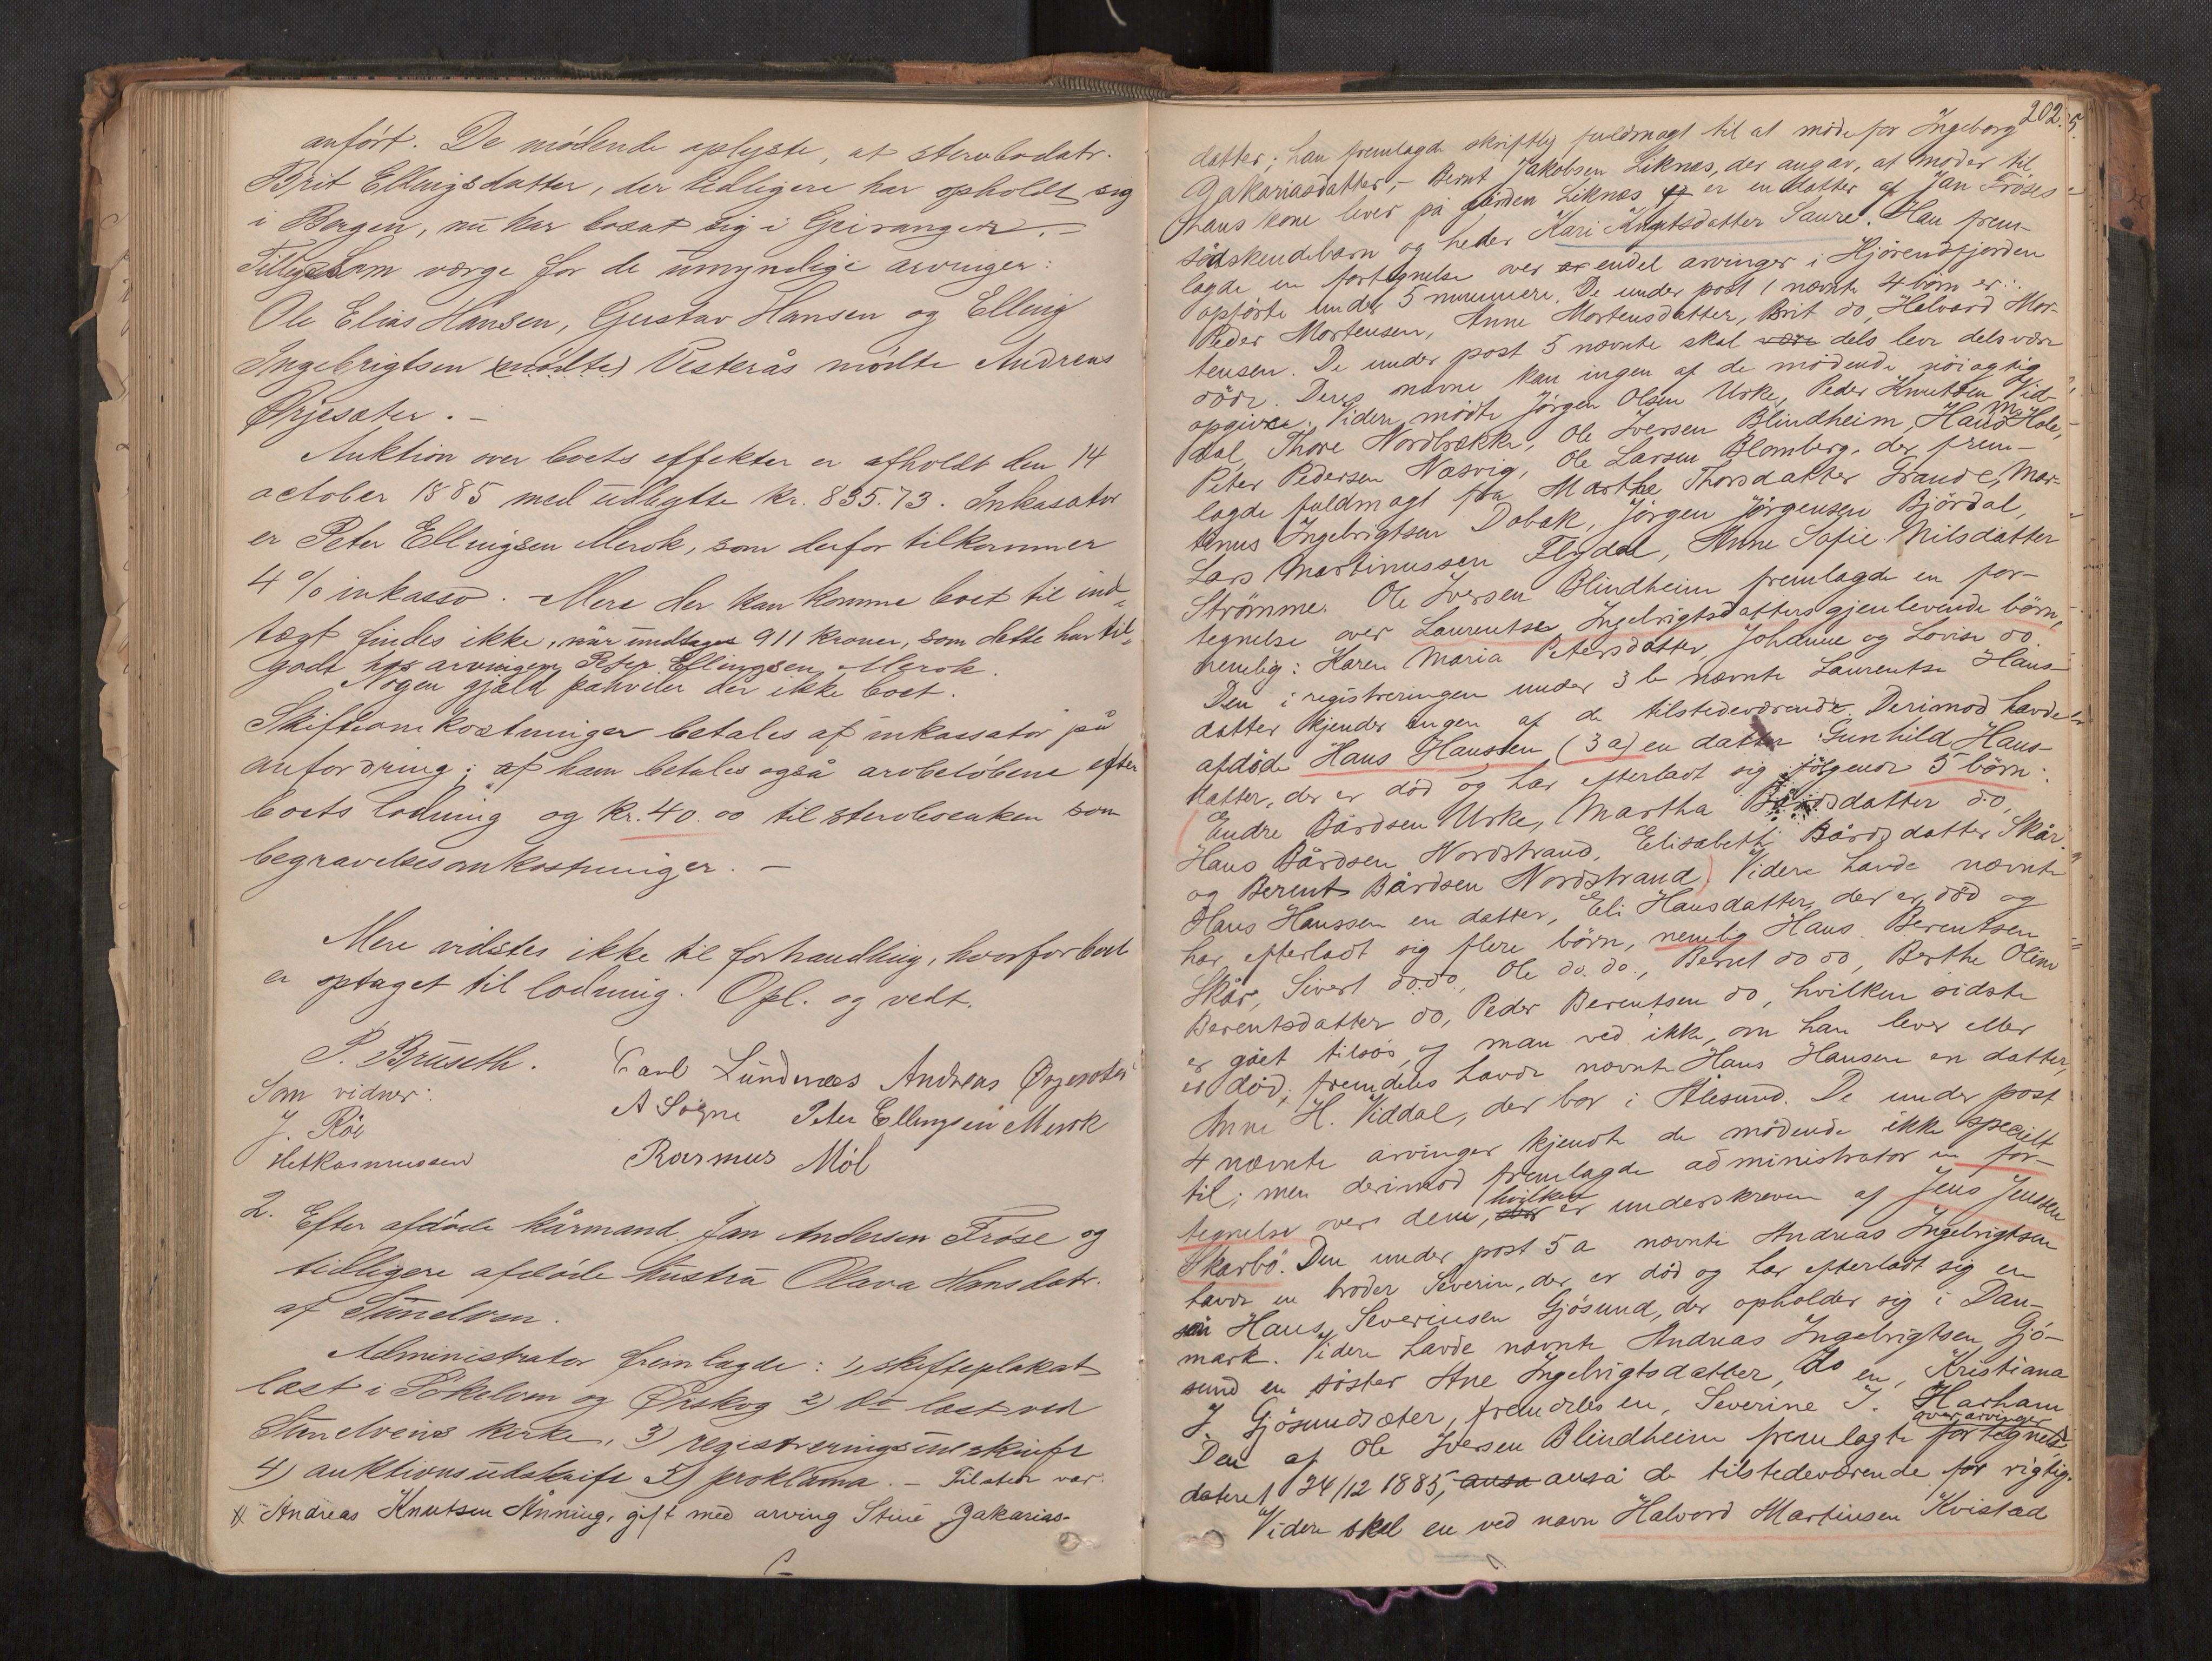 anført. De mødende oplyste, at stervbodatr.
Brit Ellingsdatter, der tidligere har opholdt sig
i Bergen, nu har bosat sig i Geiranger. –
Tilligesom værge for de umyndige arvinger:
Ole Elias Hansen, Gustav Hansen og Elling
Ingebrigtsen (mødte) Vesterås mødte Andreas
Ørjesæter. –
Auktion over boets effekter er afholdt den 14
october 1885 med udbytte kr. 835.73. Inkasator
er Peter Ellingsen Merok, som derfor tilkommer
4 % inkasso. – Mere der kan komme boet til ind-
tægt findes ikke, når undtages 911 kroner, som dette har til-
gode hos arvingen Peter Ellingsen Merok.
Nogen gjæld påhviler der ikke boet.
Skifteomkostninger betales af inkassator på
anfordring; af ham betales også arvbeløbene efter
boets lodning og kr. 40.00 til stervboenken som
begravelsesomkostninger. –
Mere vidstes ikke til forhandling, hvorfor boet
er optaget til lodning. Opl. og vedt.
P. Brüseth. Carl Lundenæs Andreas Ørjesæter
Som vidner: A Søgne Peter Ellingsen Merok
J. Röe Rasmus Möl
2. Efter afdöde kårmand Jan Andersen Fröse og
tidligere afdöde hustru Olava Hansdatr.
af Sunelven.
Administrator fremlagde: 1, skifteplakat
læst i Sökelven og Ørskog 2) do læst ved
Sunelvens kirke, 3) registreringsudskrift
4) auktionsudskrift 5) proklama. – Tilstede var:
Andreas Knutsen Ånning, gift med arving Stine Zakarias-
202.
datter; han fremlagde skriftlig fuldmagt til at möde for Ingeborg
Zakariasdatter, – Bernt Jakobsen Liknæs, der angav, at moder til
hans kone lever på gården Liknæs og er en datter af Jan Fröses
södskendebarn og heder Kari Knutsdatter Saure. Han frem-
lagde en fortegnelse over en endel arvinger i Hjörendfjorden
opförte under 5 nummere. De under post 1 nævnte 4 börn er:
Peder Mortensen, Anne Mortensdatter, Brit do, Halvard Mor-
tensen. De under post 5 nævnte skal være dels leve dels være
döde. Deres navne kan ingen af de mödende nöiagtig
opgive. Videre mödte Jörgen Olsen Urke, Peder Knutsen Vid-
dal, Thore Nordbrekke, Ole Iversen Blindheim, Hans M. Hole,
Peter Pedersen Næsvig, Ole Larsen Blomberg, der frem-
lagde fuldmagt fra Marthe Thorsdatter Grande, Mar-
tinus Ingebrigtsen Dabak, Jörgen Jörgensen Björdal,
Lars Martinussen Flydal, Anne Sofie Nilsdatter
Strömme. Ole Iversen Blindheim fremlagde en for-
tegnelse over Laurentse Ingebrigtsdatters gjenlevende börn,
nemlig: Karen Maria Petersdatter, Johanne og Lovise do.
Den i registreringen under 3 b nævnte Laurentse Hans-
datter kjender ingen af de tilstedeværende. Derimod havde
afdöde Hans Hanssen (3 a) en datter Gunhild Hans-
datter, der er död og har efterladt sig fölgende 5 börn:
(Endre Bårdsen Urke, Martha Bårdsdatter do,
Hans Bårdsen Nordstrand, Elisabeth Bårdsdatter Skår
og Berent Bårdsen Nordstrand) Videre havde nævnte
Hans Hanssen en datter, Eli Hansdatter, der er död og
har efterladt sig flere börn, nemlig Hans Berentsen
Skår, Sivert do.do., Ole do. do., Bernt do do, Berthe Oline
Berentsdatter do, Peder Berentsen do, hvilken sidste
er gået tilsös, og man ved ikke, om han lever eller
er död; fremdeles havde nævnte Hans Hansen en datter,
Anne H. Viddal, der bor i Ålesund. De under post
4 nævnte arvinger kjendte de mödende ikke specielt
til; men derimod fremlagde administrator en for-
tegnelse over dem, hvilken er underskreven af Jens Jensen
Skarbö. Den under post 5 a nævnte Andreas Ingebrigtsen
havde en broder Severin, der er död og har efterladt sig en
sön Hans Severinsen Gjösund, der opholder sig i Dan-
mark. Videre havde nævnte Andreas Ingebrigtsen Gjö-
sund en söster Ane Ingebrigtsdatter, do en, Kristiana
J Gjösundsæter, fremdeles en, Severine J. Harham
Den af Ole Iversen Blindheim fremlagte fortegnelse over arvinger
dateret 24/12 1885, ansa anså de tilstedeværende for rigtig.
Videre skal en ved navn Halvard Martinsen Kvistad